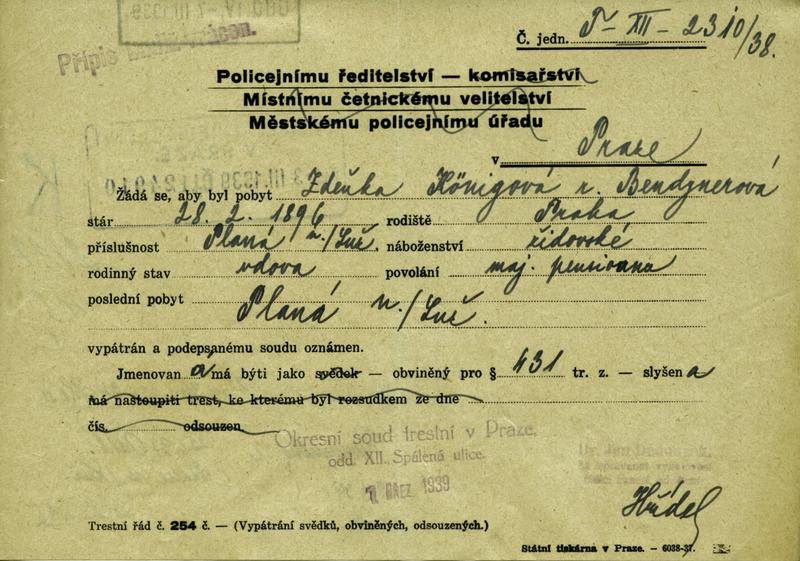 Č. jedn. T-XII-2310/38.
Přípis
Policejnímu ředitelství — komisařství
Místnímu četnickému velitelství
Městskému policejnímu úřadu
v Praze
Žádá se, aby byl pobyt Zdeňka Königová r. Bendznerová
stár 28. 2. 1896 rodiště Praha
příslušnost Planá n./Luž. náboženství židovské
rodinný stav vdova povolání maj. pensionu
poslední pobyt Planá n./Luž.
vypátrán a podepsanému soudu oznámen.
Jmenovan á má býti jako svědek — obviněný pro § 431 tr. z. — slyšen a
má nastoupiti trest, ke kterému byl rozsudkem ze dne
čís. odsouzen.
Okresní soud trestní v Praze,
odd. XII. Spálená ulice.
BŘEZ 1939
Trestní řád č. 254 č. — (Vypátrání svědků, obviněných, odsouzených.)
Státní tiskárna v Praze. — 6038-37.